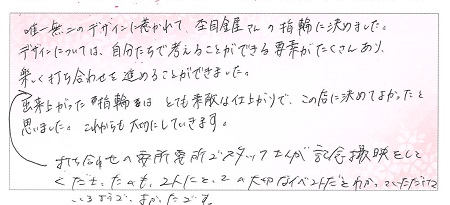 唯一無二のデザインに惹かれて杢目金屋さんの指輪に決めました。
デザインについては、自分たちで考えることができる要素がたくさんあり、
楽しく打ち合わせを進めることができました。
出来上がった指輪はとても素敵な仕上がりで、この店に決めてよかったと
思いました。これからも大切にしていきます。
打ち合わせの要所要所でスタッフさんが記念撮影をして
くださったのも、2人にとっての大切なイベントだとわかっていただけて
いるようで、よかったです。